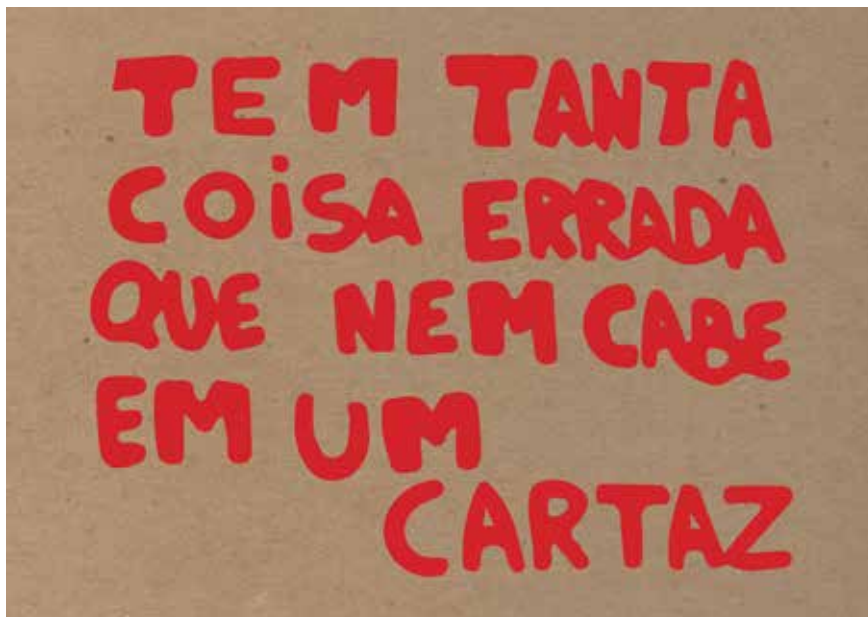 TEM TANTA
COiSA ERRADA
QUE NEM CABE
EM UM
CARTAZ